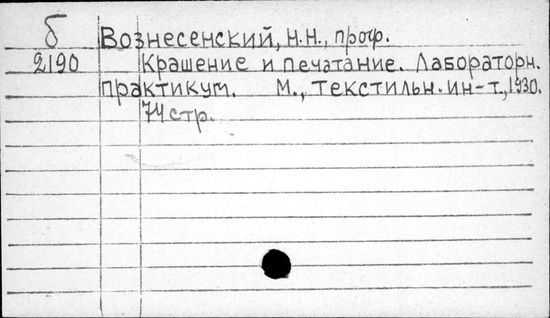 б Вознесенский, Н.Н., проф.
2190 Крашение и печатание. Лабораторн.
практикум. М., Текстильн. ин-т, 1930.
74 стр.